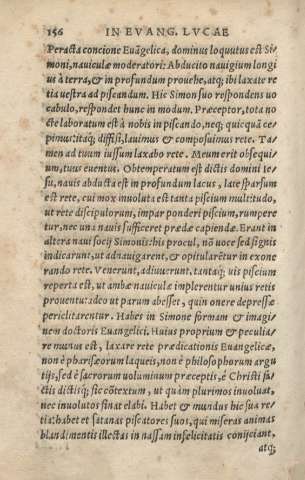 156 IN EVANG. LVCAE
Peracta concione Euãgelica, dominus loquutus est Si-
moni, nauiculæ moderatori: Abducito nauigium longi
us à terra, & in profundum prouehe, atq; ibi laxate re
tia vestra ad piscandum. Hic Simon suo respondens uo
cabulo, respondet hunc in modum. Præceptor, tota no
cte laboratum est à nobis in piscando, neq; quicquã ce-
pimus: itaq; diffisi, lauimus & composuimus rete. Ta-
men ad tuum iussum laxabo rete. Meum erit obsequi-
um, tuus euentus. Obtemperatum est dictis domini Ie-
su, nauis abducta est in profundum lacus, late sparsum
est rete, cui mox inuoluta est tanta piscium multitudo,
ut rete discipulorum, impar ponderi piscium, rumpere
tur, nec una nauis sufficeret prædæ capiendæ. Erant in
altera naui socij Simonis: his procul, nõ voce sed signis
indicarunt, ut adnauigarent, & opitularẽtur in exone
rando rete. Venerunt, adiuuerunt. tantaq; uis piscium
reperta est, ut ambæ nauiculæ implerentur unius retis
prouentu: adeo ut parum abesset, quin onere depressæ
periclitarentur. Habes in Simone formam & imagi-
nem doctoris Euangelici. Huius proprium & peculia-
re munus est, laxare rete prædicationis Euangelicæ,
non è pharisæorum laqueis, non è philosophorum argu
tijs, sed è sacrorum uoluminum præceptis, è Christi fa-
ctis dictisq; sic cõtextum, ut quàm plurimos inuoluat,
nec inuolutos sinat elabi. Habet & mundus hic sua re-
tia: habet et satanas piscatores suos, qui miseras animas
blandimentis illectas in nassam infelicitatis conijciant,
atq;